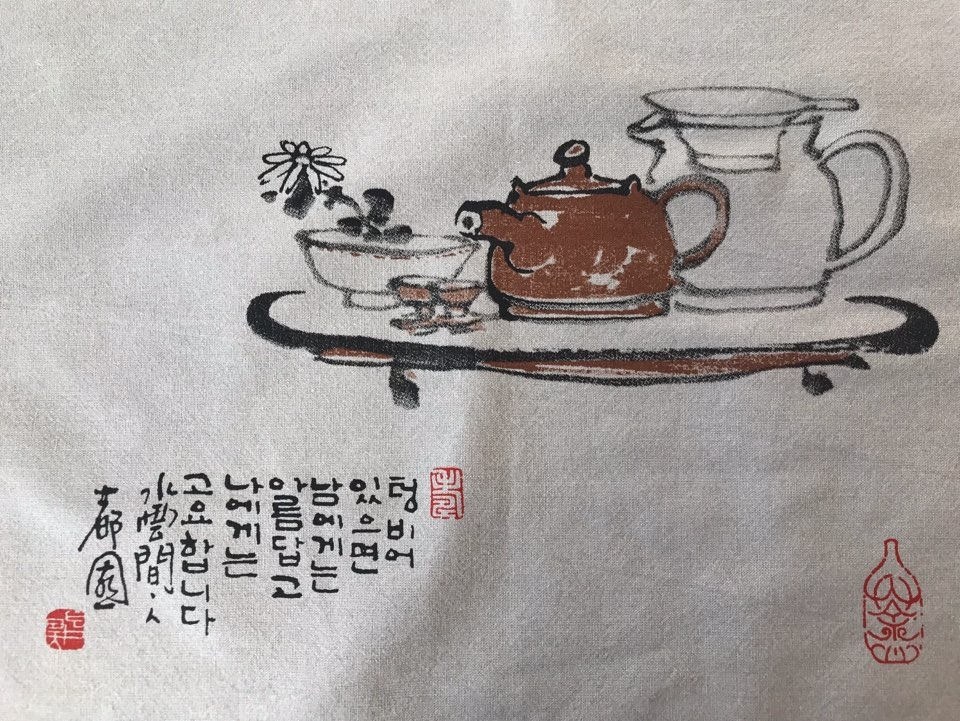 텅비어
있으면
남에게는
아름답고
나에게는
고요합니다
水雲間人
都園